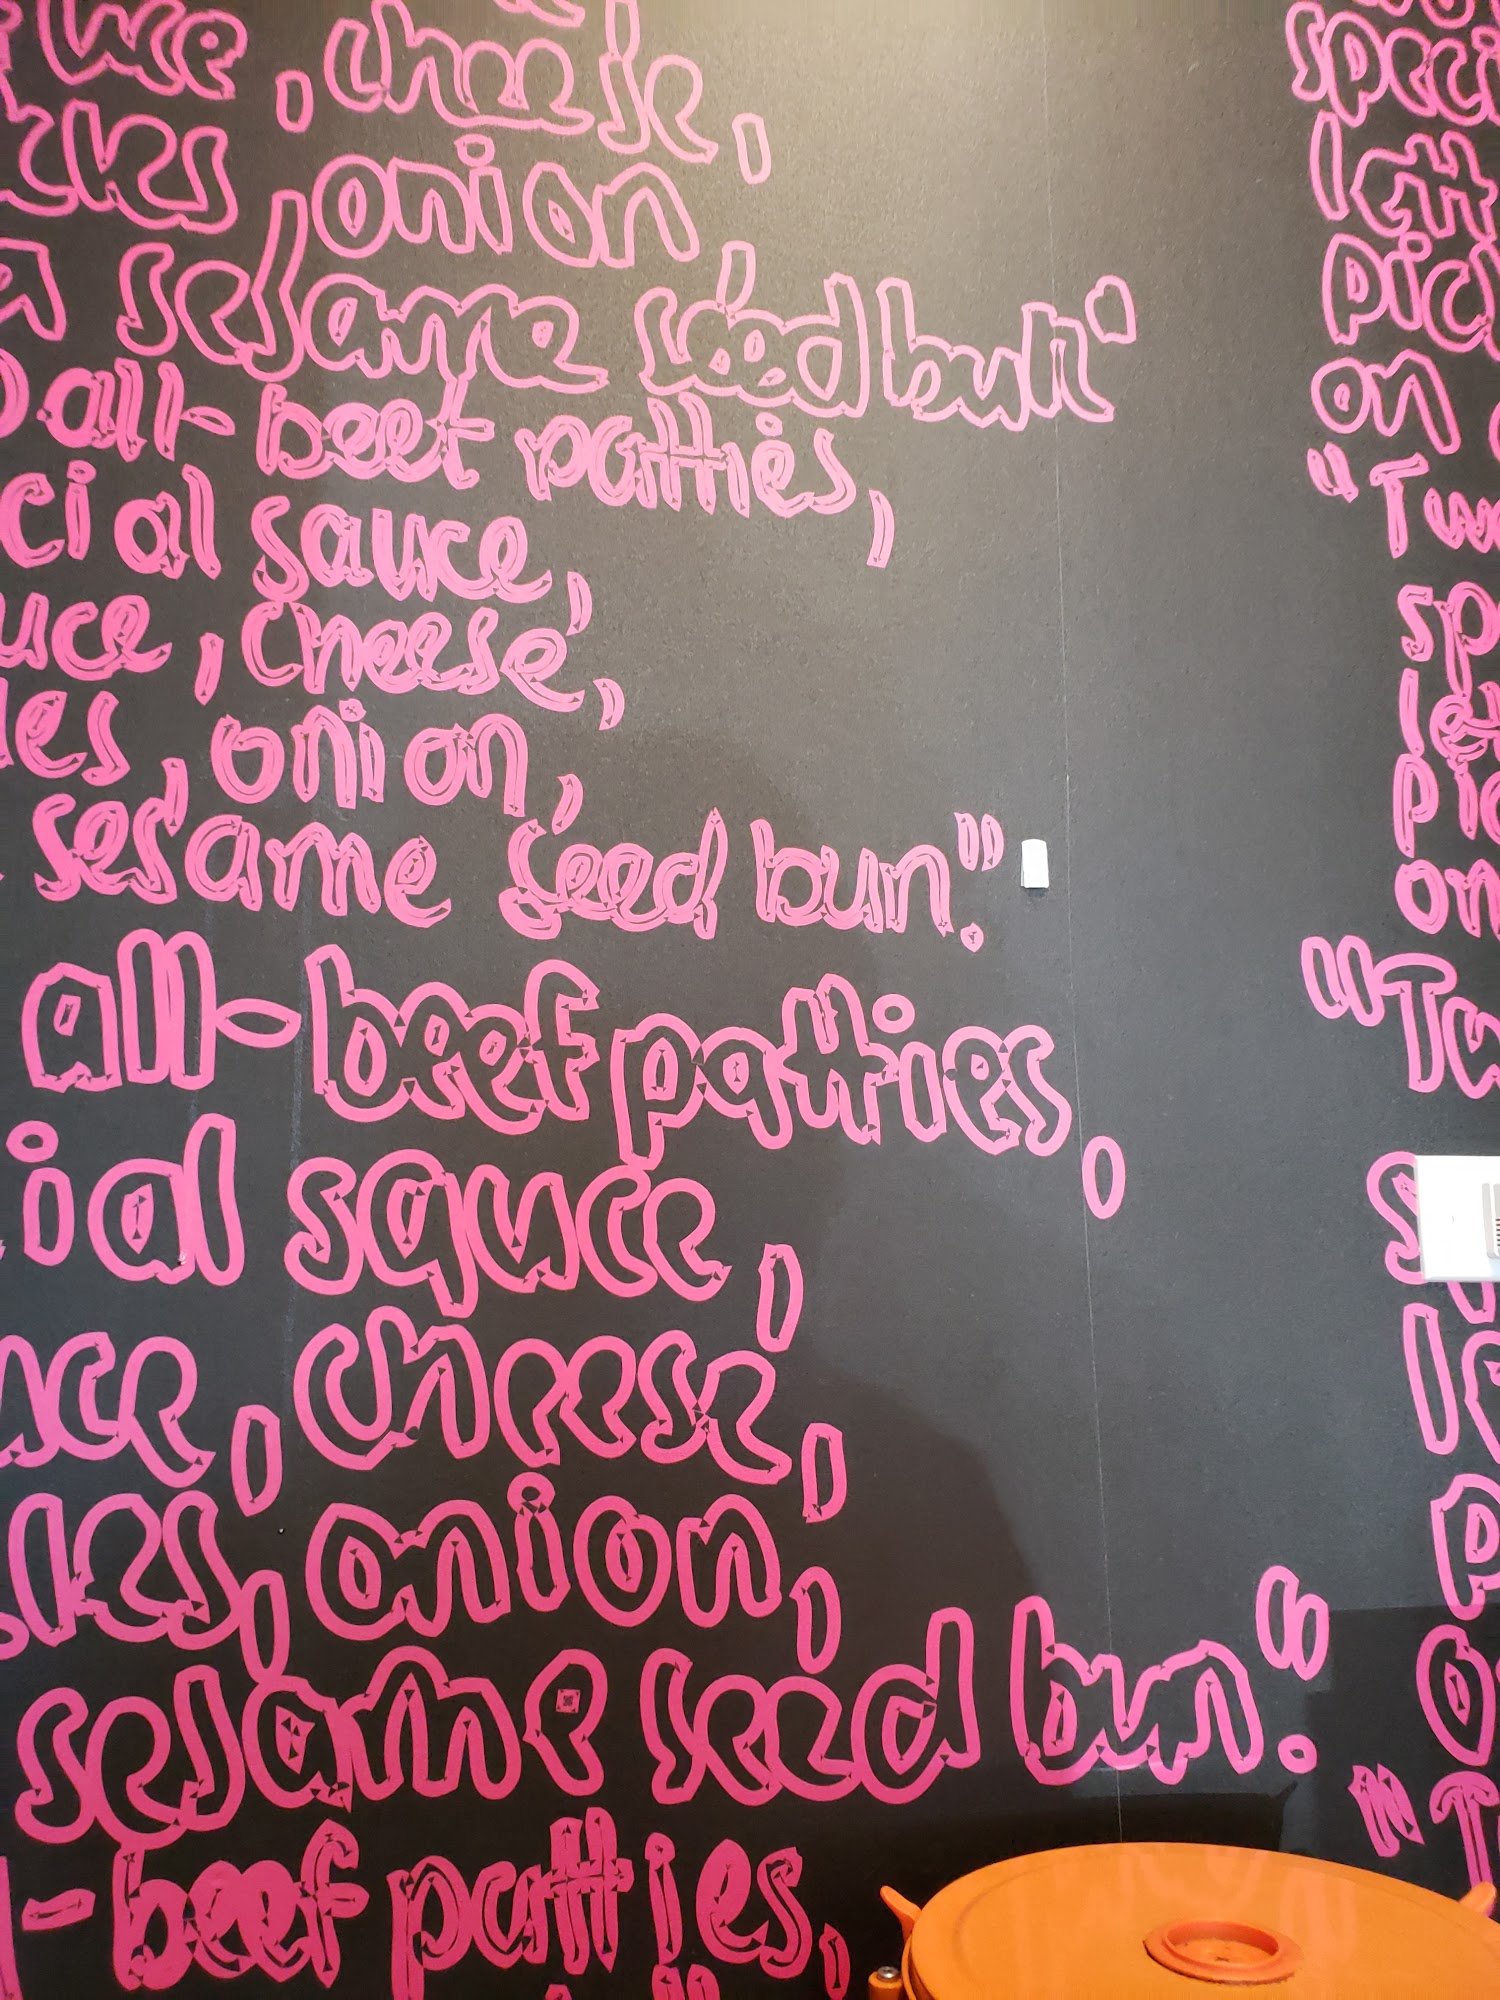 cheese,
onion,
sesame seed bun"
all-beef patties,
cial sauce,
uce, cheese,
les, onion,
sesame seed bun."
all-beef patties,
ial sauce,
uce, cheese,
kles, onion,
sesame seed bun."
-beef patties,
speci
lett
pick
on
"Two
sp
let
pic
on
"Tw
s
le
p
o
"T